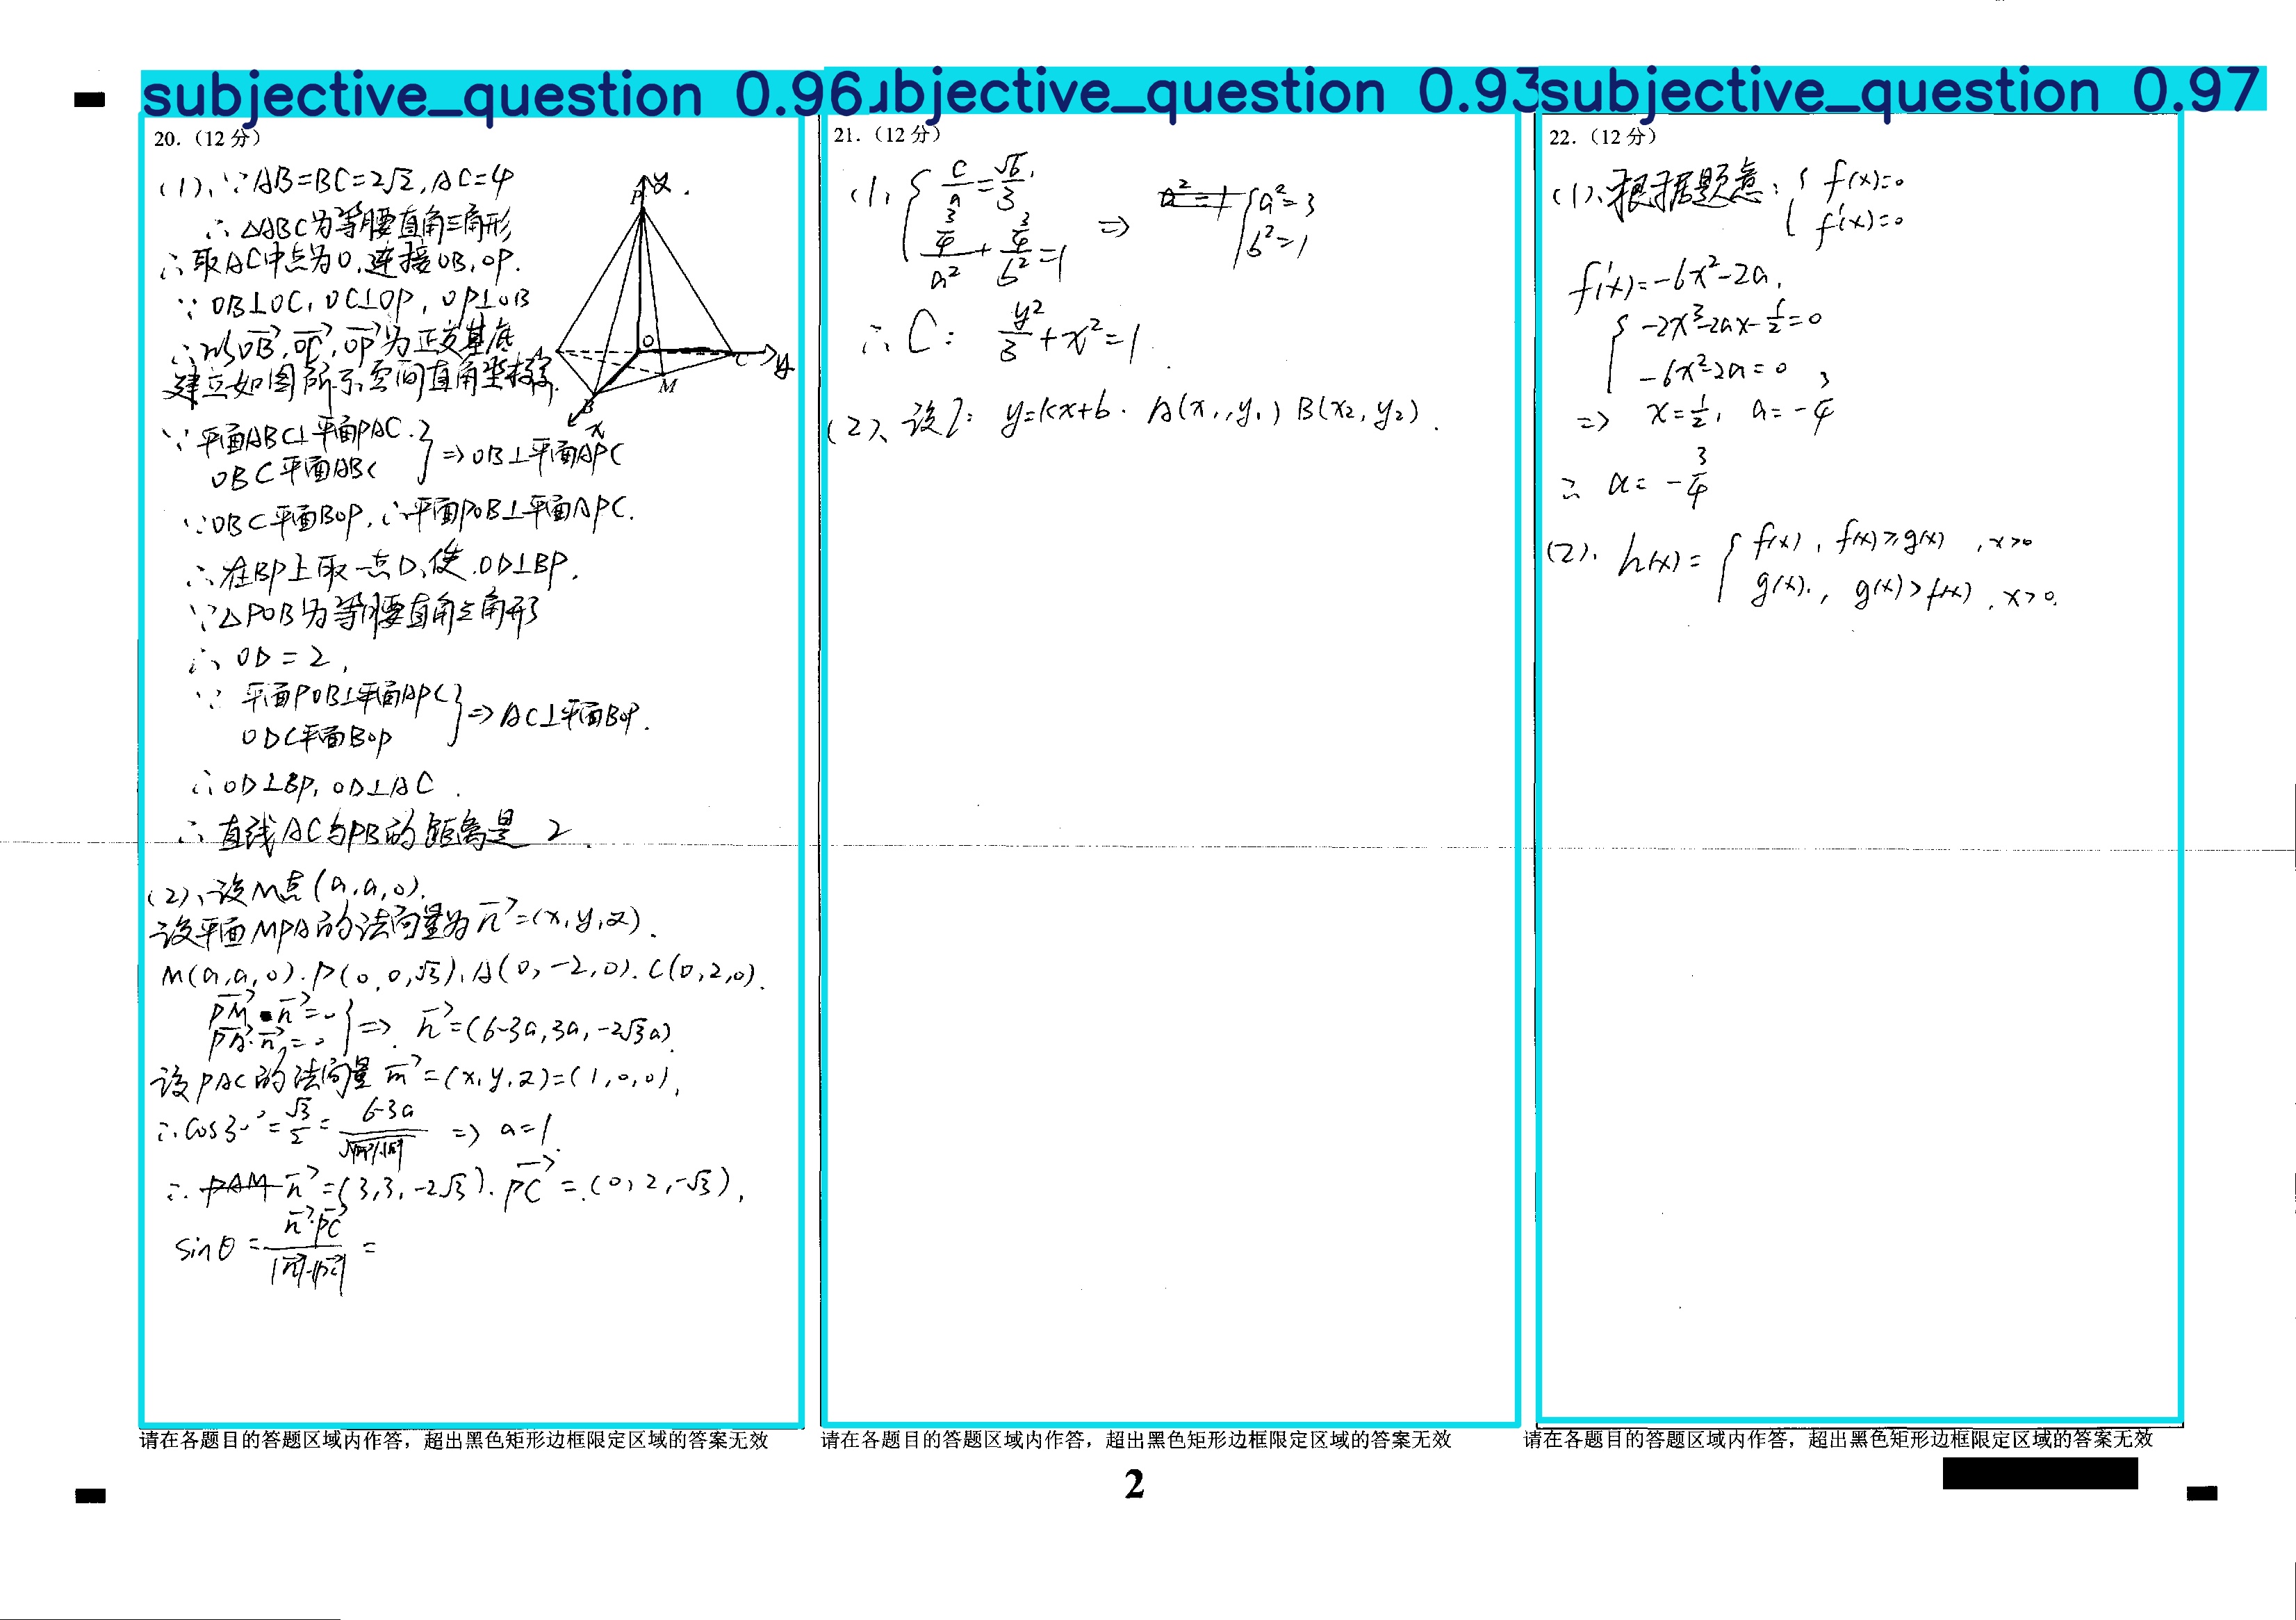 subjective_question 0.96
ubjective_question 0.93
subjective_question 0.97
20.（12 分）
(1)、∵AB=BC=2√2, AC=4
∴△ABC为等腰直角三角形
∴取AC中点为O,连接OB,OP.
∵OB⊥OC, OC⊥OP, OP⊥OB
∴以OB,OC,OP为正交基底
建立如图所示空间直角坐标系.
P z
A O C y
B M
x
∵平面ABC⊥平面PAC.
OB⊂平面ABC } ⇒OB⊥平面APC
∵OB⊂平面BOP,∴平面POB⊥平面APC.
∴在BP上取一点D,使OD⊥BP.
∵△POB为等腰直角三角形
∴OD=2,
∵平面POB⊥平面APC
OD⊂平面BOP } ⇒AC⊥平面BOP.
∴OD⊥BP, OD⊥AC.
∴直线AC与PB的距离是 2.
(2)、设M点(a,a,0).
设平面MPA的法向量为n=(x,y,z).
M(a,a,0).P(0,0,√3),A(0,-2,0).C(0,2,0).
PM·n=0
PA·n=0 } ⇒ n=(6-3a,3a,-2√3a).
设PAC的法向量m=(x,y,z)=(1,0,0),
∴cos30°=√3/2=(6-3a)/√|m|·|n| ⇒ a=1.
∴PAM n=(3,3,-2√3).PC=(0,2,-√3),
sinθ=n·PC/|n|·|PC| =
请在各题目的答题区域内作答，超出黑色矩形边框限定区域的答案无效
21.（12 分）
(1、{ c/a=√6/3,
(3/4)/a²+(3/4)/b²=1 ⇒ a²=1 { a²=3
b²=1
∴C: y²/3+x²=1.
(2)、设l: y=kx+b. A(x₁,y₁) B(x₂,y₂).
请在各题目的答题区域内作答，超出黑色矩形边框限定区域的答案无效
22.（12 分）
(1)、根据题意: { f(x)=0
f'(x)=0
f'(x)=-6x²-2a,
{ -2x³-2ax-1/2=0
-6x²-2a=0
⇒ x=1/2, a=-3/4
∴ a=-3/4
(2)、h(x)= { f(x), f(x)≥g(x) ,x>0
g(x)., g(x)>f(x) ,x>0.
请在各题目的答题区域内作答，超出黑色矩形边框限定区域的答案无效
2